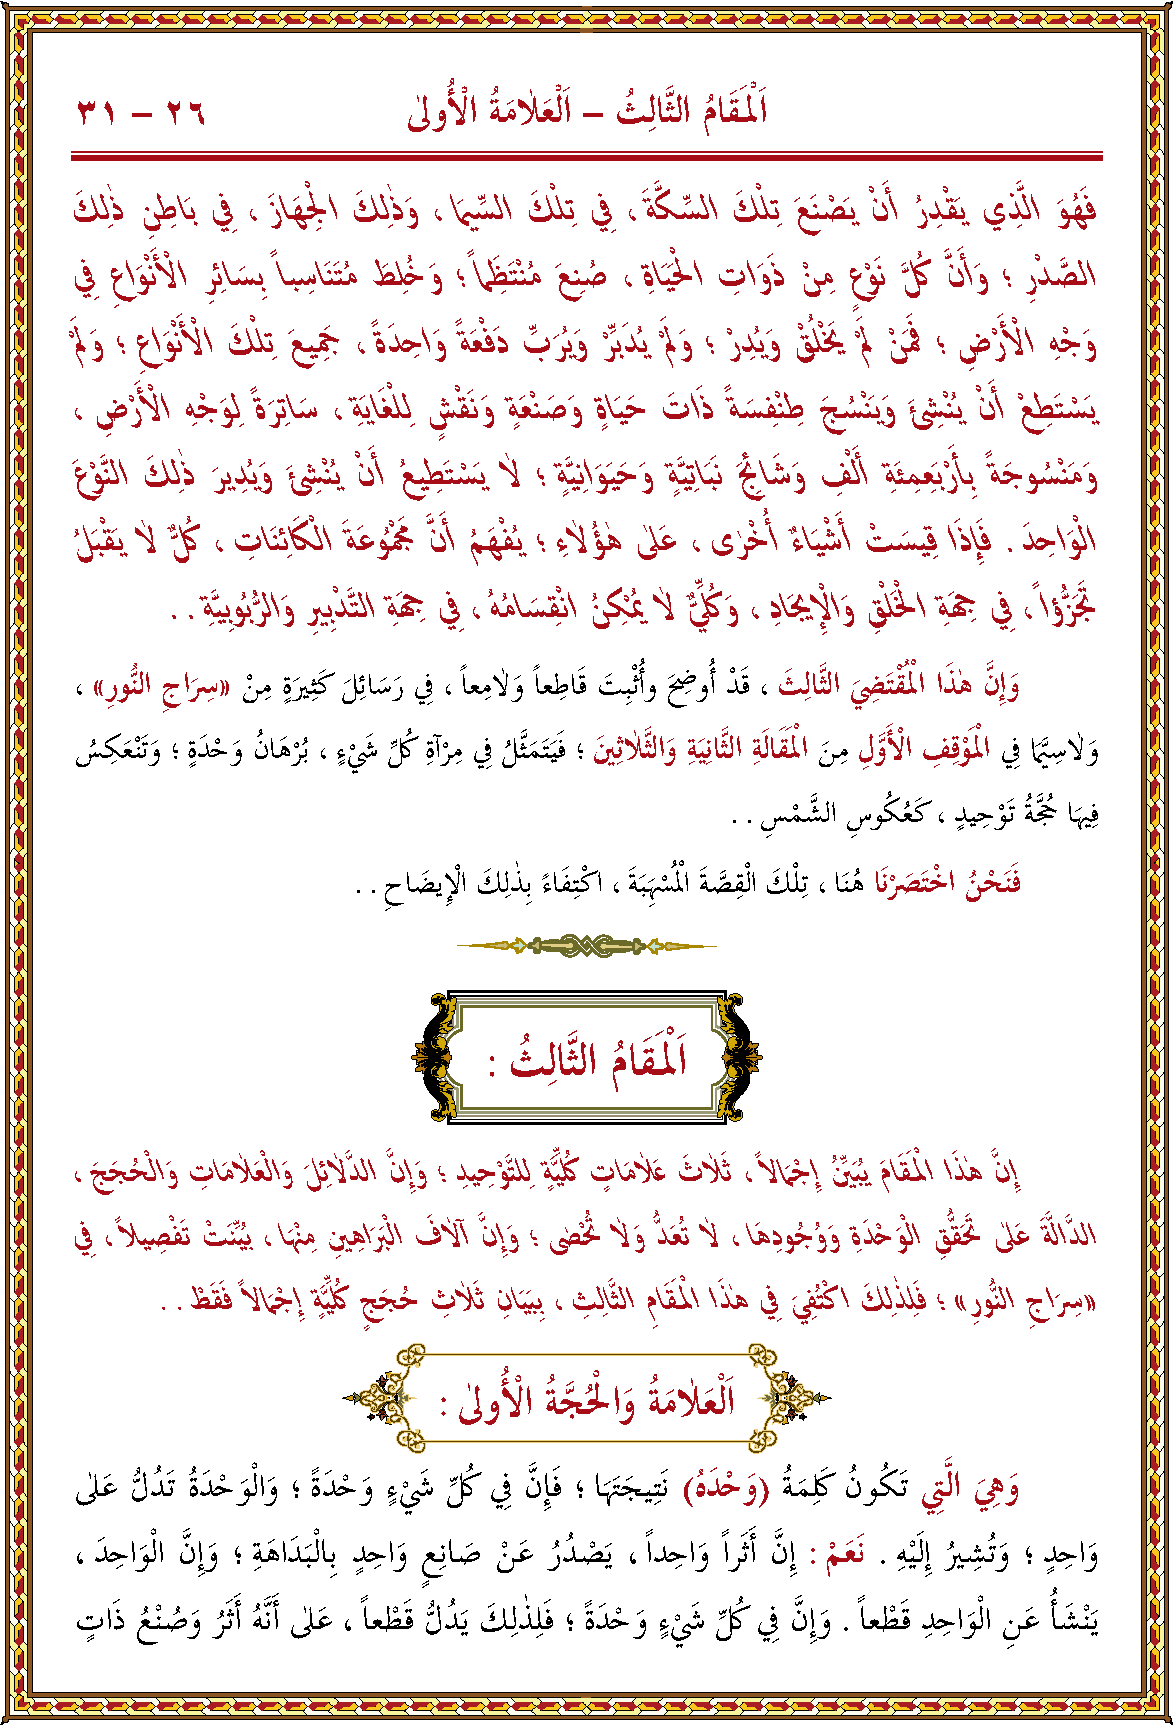 اَلْمَقَامُ الثَّالِثُ – اَلْعَلَامَةُ الْأُولىٰ ٢٦ – ٣١
فَهُوَ الَّذِي يَقْدِرُ أَنْ يَصْنَعَ تِلْكَ السِّكَّةَ ، فِي تِلْكَ السِّيَمَا ، وَذٰلِكَ الْجِهَازَ ، فِي بَاطِنِ ذٰلِكَ
الصَّدْرِ ؛ وَأَنَّ كُلَّ نَوْعٍ مِنْ ذَوَاتِ الْحَيَاةِ ، صُنِعَ مُنْتَظَماً ؛ وَخُلِطَ مُتَنَاسِباً بِسَائِرِ الْأَنْوَاعِ فِي
وَجْهِ الْأَرْضِ ؛ فَمَنْ لَمْ يَخْلُقْ وَيُدِرْ ؛ وَلَمْ يُدَبِّرْ وَيُرَبِّ دَفْعَةً وَاحِدَةً ، جَمِيعَ تِلْكَ الْأَنْوَاعِ ؛ وَلَمْ
يَسْتَطِعْ أَنْ يُنْشِئَ وَيَنْسُجَ طِنْفِسَةً ذَاتَ حَيَاةٍ وَصَنْعَةٍ وَنَقْشٍ لِلْغَايَةِ ، سَاتِرَةً لِوَجْهِ الْأَرْضِ ،
وَمَنْسُوجَةً بِأَرْبَعِمِئَةِ أَلْفِ وَشَائِجَ نَبَاتِيَّةٍ وَحَيَوَانِيَّةٍ ؛ لَا يَسْتَطِيعُ أَنْ يُنْشِئَ وَيُدِيرَ ذٰلِكَ النَّوْعَ
الْوَاحِدَ . فَإِذَا قِيسَتْ أَشْيَاءٌ أُخْرٰى ، عَلىٰ هٰؤُلَاءِ ؛ يُفْهَمُ أَنَّ مَجْمُوعَةَ الْكَائِنَاتِ ، كُلٌّ لَا يَقْبَلُ
تَجَزُّؤاً ، فِي جِهَةِ الْخَلْقِ وَالْإِيجَادِ ، وَكُلِّيٌّ لَا يُمْكِنُ انْقِسَامُهُ ، فِي جِهَةِ التَّدْبِيرِ وَالرُّبُوبِيَّةِ . .
وَإِنَّ هٰذَا الْمُقْتَضِيَ الثَّالِثَ ، قَدْ أُوضِحَ وأُثْبِتَ قَاطِعاً وَلَامِعاً ، فِي رَسَائِلَ كَثِيرَةٍ مِنْ «سِرَاجِ النُّورِ» ،
وَلَاسِيَّمَا فِي الْمَوْقِفِ الْأَوَّلِ مِنَ الْمَقَالَةِ الثَّانِيَةِ وَالثَّلَاثِينَ ؛ فَيَتَمَثَّلُ فِي مِرْآةِ كُلِّ شَيْءٍ ، بُرْهَانُ وَحْدَةٍ ؛ وَتَنْعَكِسُ
فِيهَا حُجَّةُ تَوْحِيدٍ ، كَعُكُوسِ الشَّمْسِ . .
فَنَحْنُ اخْتَصَرْنَا هُنَا ، تِلْكَ الْقِصَّةَ الْمُسْهَبَةَ ، اكْتِفَاءً بِذٰلِكَ الْإِيضَاحِ . .
اَلْمَقَامُ الثَّالِثُ :
إِنَّ هٰذَا الْمَقَامَ يُبَيِّنُ إِجْمَالاً ، ثَلَاثَ عَلَامَاتٍ كُلِّيَّةٍ لِلتَّوْحِيدِ ؛ وَإِنَّ الدَّلَائِلَ وَالْعَلَامَاتِ وَالْحُجَجَ ،
الدَّالَّةَ عَلىٰ تَحَقُّقِ الْوَحْدَةِ وَوُجُودِهَا ، لَا تُعَدُّ وَلَا تُحْصٰى ؛ وَإِنَّ آلَافَ الْبَرَاهِينِ مِنْهَا ، بُيِّنَتْ تَفْصِيلاً ، فِي
«سِرَاجِ النُّورِ» ؛ فَلِذٰلِكَ اكْتُفِيَ فِي هٰذَا الْمَقَامِ الثَّالِثِ ، بِبَيَانِ ثَلَاثِ حُجَجٍ كُلِّيَّةٍ إِجْمَالاً فَقَطْ . .
اَلْعَلَامَةُ وَالْحُجَّةُ الْأُولىٰ :
وَهِيَ الَّتِي تَكُونُ كَلِمَةُ (وَحْدَهُ) نَتِيجَتَهَا ؛ فَإِنَّ فِي كُلِّ شَيْءٍ وَحْدَةً ؛ وَالْوَحْدَةُ تَدُلُّ عَلىٰ
وَاحِدٍ ؛ وَتُشِيرُ إِلَيْهِ . نَعَمْ : إِنَّ أَثَراً وَاحِداً ، يَصْدُرُ عَنْ صَانِعٍ وَاحِدٍ بِالْبَدَاهَةِ ؛ وَإِنَّ الْوَاحِدَ ،
يَنْشَأُ عَنِ الْوَاحِدِ قَطْعاً . وَإِنَّ فِي كُلِّ شَيْءٍ وَحْدَةً ؛ فَلِذٰلِكَ يَدُلُّ قَطْعاً ، عَلىٰ أَنَّهُ أَثَرُ وَصُنْعُ ذَاتٍ